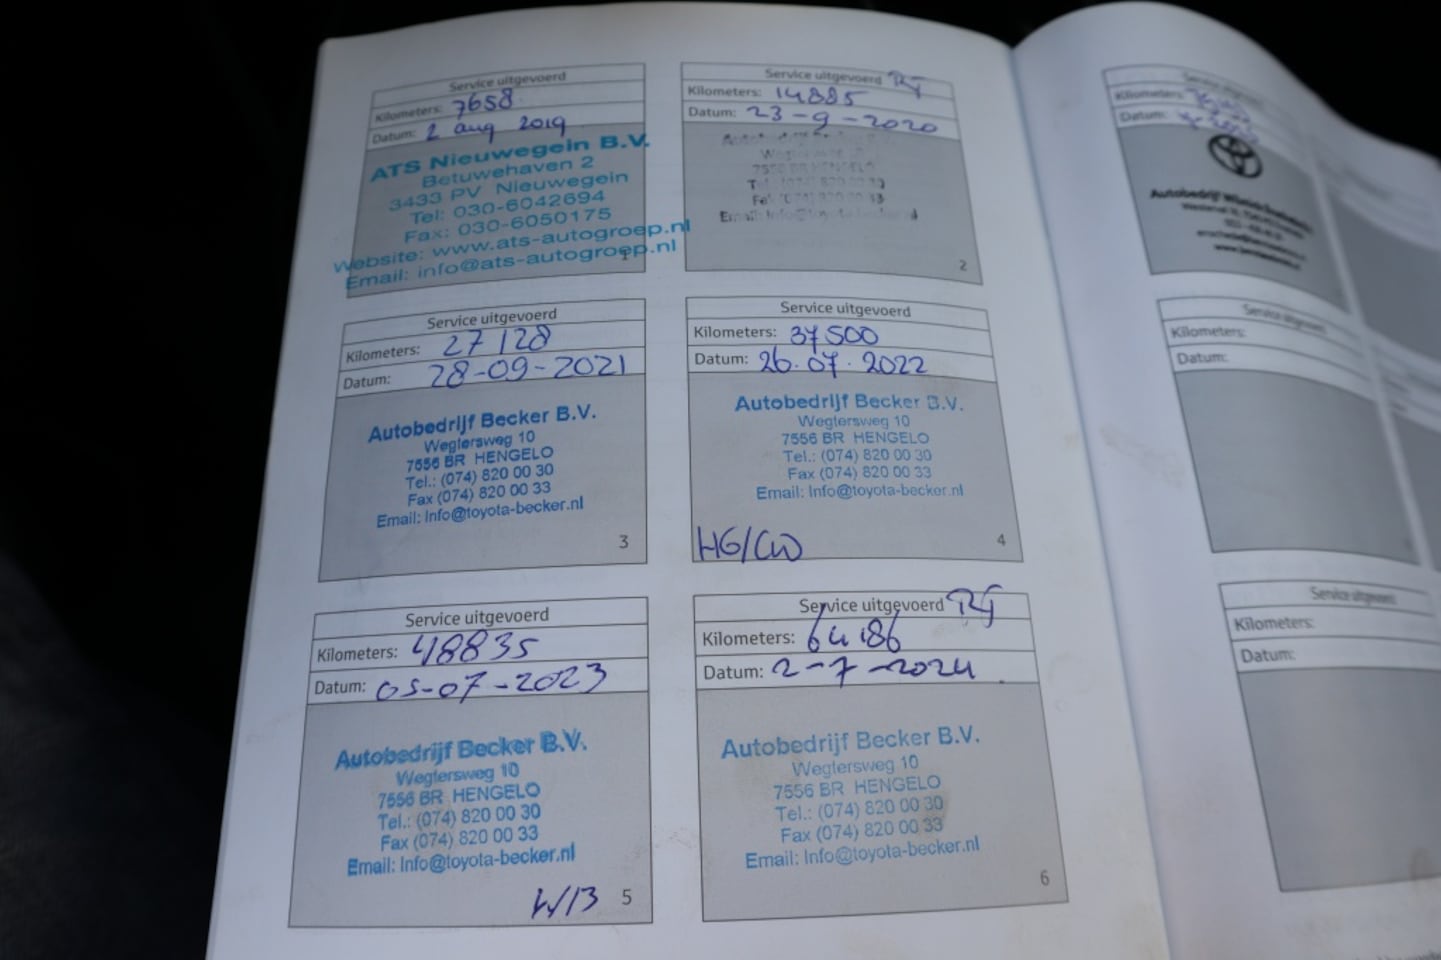 Service uitgevoerd
Kilometers: 7658
Datum: 2 aug 2019
ATS Nieuwegein B.V.
Betuwehaven 2
3433 PV Nieuwegein
Tel: 030-6042694
Fax: 030-6050175
Website: www.ats-autogroep.nl
Email: info@ats-autogroep.nl
1
Service uitgevoerd
Kilometers: 14885
Datum: 23-9-2020
7556 BR HENGELO
Tel.: (074) 820 00 30
Fax (074) 820 00 33
Email: Info@toyota-becker.nl
2
Service uitgevoerd
Kilometers: 27128
Datum: 28-09-2021
Autobedrijf Becker B.V.
Wegtersweg 10
7556 BR HENGELO
Tel.: (074) 820 00 30
Fax (074) 820 00 33
Email: Info@toyota-becker.nl
3
Service uitgevoerd
Kilometers: 37500
Datum: 26.07.2022
Autobedrijf Becker B.V.
Wegtersweg 10
7556 BR HENGELO
Tel.: (074) 820 00 30
Fax (074) 820 00 33
Email: Info@toyota-becker.nl
HG/CW
4
Service uitgevoerd
Kilometers: 48835
Datum: 05-07-2023
Autobedrijf Becker B.V.
Wegtersweg 10
7556 BR HENGELO
Tel.: (074) 820 00 30
Fax (074) 820 00 33
Email: Info@toyota-becker.nl
5
Service uitgevoerd
Kilometers: 64186
Datum: 2-7-2024
Autobedrijf Becker B.V.
Wegtersweg 10
7556 BR HENGELO
Tel.: (074) 820 00 30
Fax (074) 820 00 33
Email: Info@toyota-becker.nl
6
Service uitgevoerd
Kilometers:
Datum:
Autobedrijf
Service uitgevoerd
Kilometers:
Datum:
Service uitgevoerd
Kilometers:
Datum: